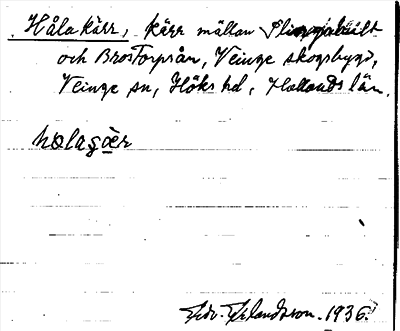 Håla kärr, kärr mällan Slingebält
och Brostorpsån, Veinge skogsbygd,
Veinge sn, Höks hd, Hallands län.
hœlagær
1936.